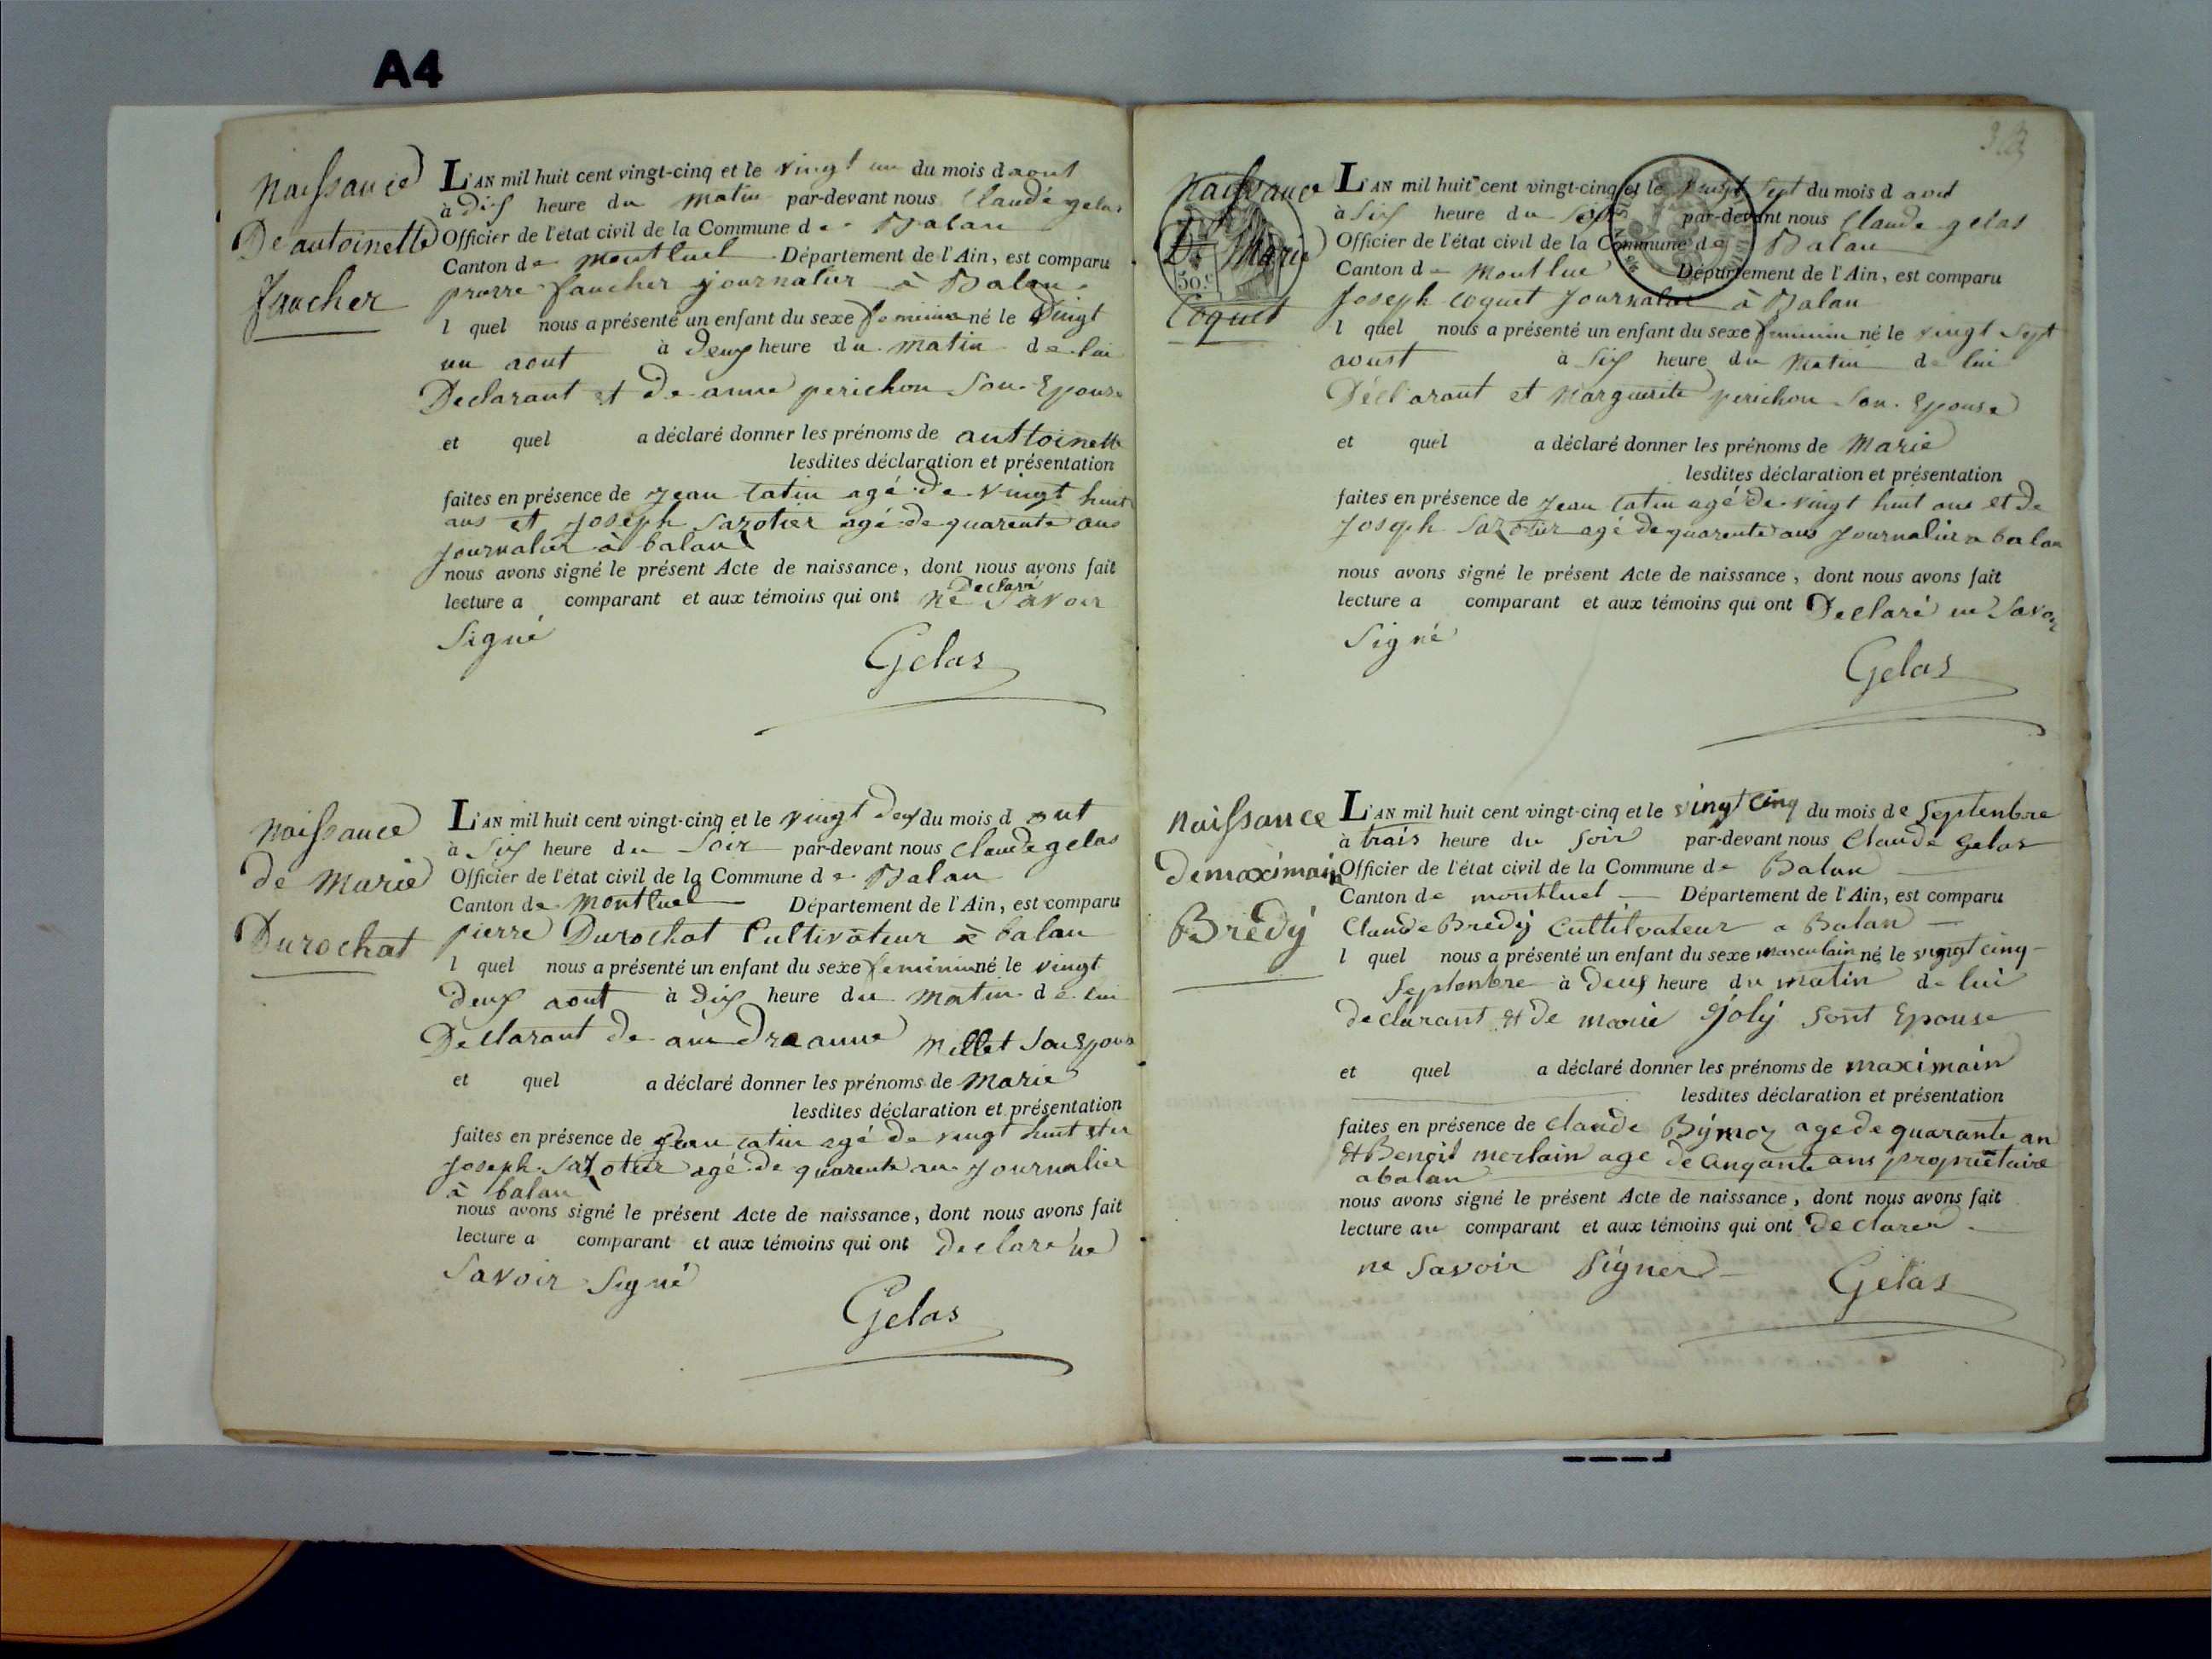 A4
Naissance
De antoinette
faucher
L'AN mil huit cent vingt-cinq et le vingt un du mois d aout
à dix heure du matin par-devant nous Claude gelas
Officier de l'état civil de la Commune de Balan
Canton de montluel Département de l'Ain, est comparu
pierre faucher journalier à Balan
l quel nous a présenté un enfant du sexe feminin né le vingt
un aout à deux heure du matin de lui
Declarant et de anne perichon Son Epouse
et quel a déclaré donner les prénoms de anttoinette
lesdites déclaration et présentation
faites en présence de jean Catin agé de vingt huit
ans et joseph Sazotier agé de quarente ans
journalier à balan
nous avons signé le présent Acte de naissance, dont nous avons fait
lecture a comparant et aux témoins qui ont Declaré ne Savoir
Signé
Gelas
Naissance
de Marie
Durochat
L'AN mil huit cent vingt-cinq et le vingt deux du mois d out
à Six heure du Soir par-devant nous Claude gelas
Officier de l'état civil de la Commune de Balan
Canton de Montluel Département de l'Ain, est comparu
pierre Durochat Cultivateur à balan
l quel nous a présenté un enfant du sexe feminin né le vingt
deux aout à dix heure du matin de lui
Declarant de anne Millet
et quel a déclaré donner les prénoms de Marie
lesdites déclaration et présentation
faites en présence de jean Catin agé de vingt huit
joseph Sazotier agé de quarente an journalier
à balan
nous avons signé le présent Acte de naissance, dont nous avons fait
lecture a comparant et aux témoins qui ont declare ne
Savoir Signé
Gelas
Naissance
De Marie
Coquet
50.c
L'AN mil huit cent vingt-cinq et le vingt Sept du mois d aout
à Six heure du Soir par-devant nous Claude gelas
Officier de l'état civil de la Commune de Balan
Canton de Montlue Département de l'Ain, est comparu
Joseph Coquet Journalier à Balan
l quel nous a présenté un enfant du sexe feminin né le vingt Sept
aoust à Six heure du Matin de lui
Déclarant et Marguerite perichon Son Epouse
et quel a déclaré donner les prénoms de Marie
lesdites déclaration et présentation
faites en présence de jean Catin agé de vingt huit ans et de
joseph Sazotier agé de quarente ans journalier a balan
nous avons signé le présent Acte de naissance, dont nous avons fait
lecture a comparant et aux témoins qui ont Declaré ne Savoir
Signé
Gelas
Naissance
de maximain
Bredÿ
L'AN mil huit cent vingt-cinq et le vingt cinq du mois de Septenbre
à trais heure du soir par-devant nous Claude Gelas
Officier de l'état civil de la Commune de Balan
Canton de montluel Département de l'Ain, est comparu
Claude Bredÿ Cultivateur a Balan
l quel nous a présenté un enfant du sexe masculain né le vingt cinq
Septenbre à deux heure du matin de lui
declarant et de marie joly sont Epouse
et quel a déclaré donner les prénoms de maximain
lesdites déclaration et présentation
faites en présence de Claude Bÿmoz age de quarante an
et Benoit merlain age de cinqante ans propriétaire
a balan
nous avons signé le présent Acte de naissance, dont nous avons fait
lecture au comparant et aux témoins qui ont declarer
ne savoir Signer
Gelas